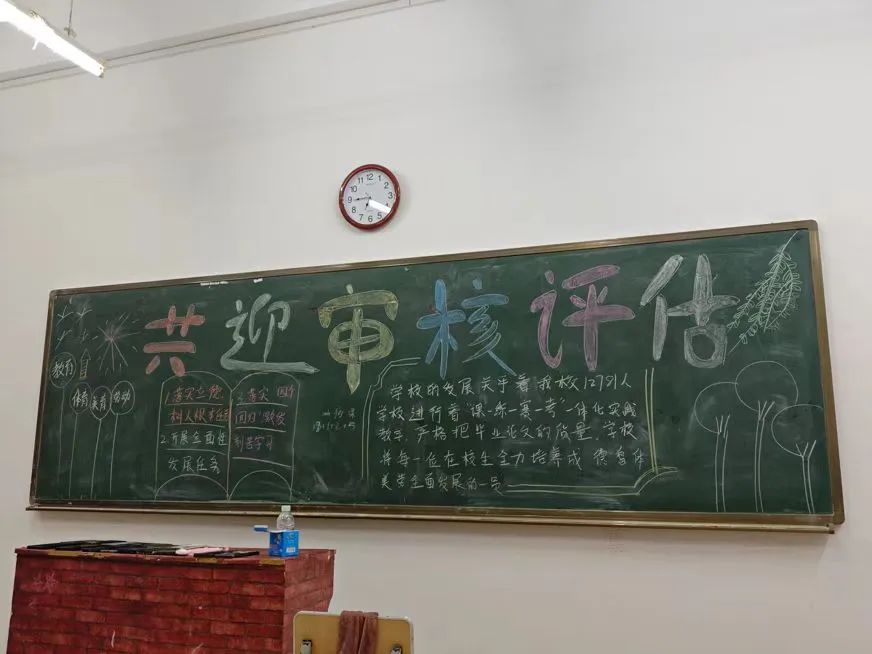 共迎审核评估
教育
体育 美育 劳动
1.落实立德
树人根本任务
2.开展全面性
发展任务
3.落实 四个
回归
学校的发展关乎着我校12791人
学校进行着“课一练一赛一考”一体化实践
教学.严格把毕业论文的质量.学校
将每一位在校生全力培养成 德智体
美劳全面发展的一员
12
1
2
3
4
5
6
7
8
9
10
11